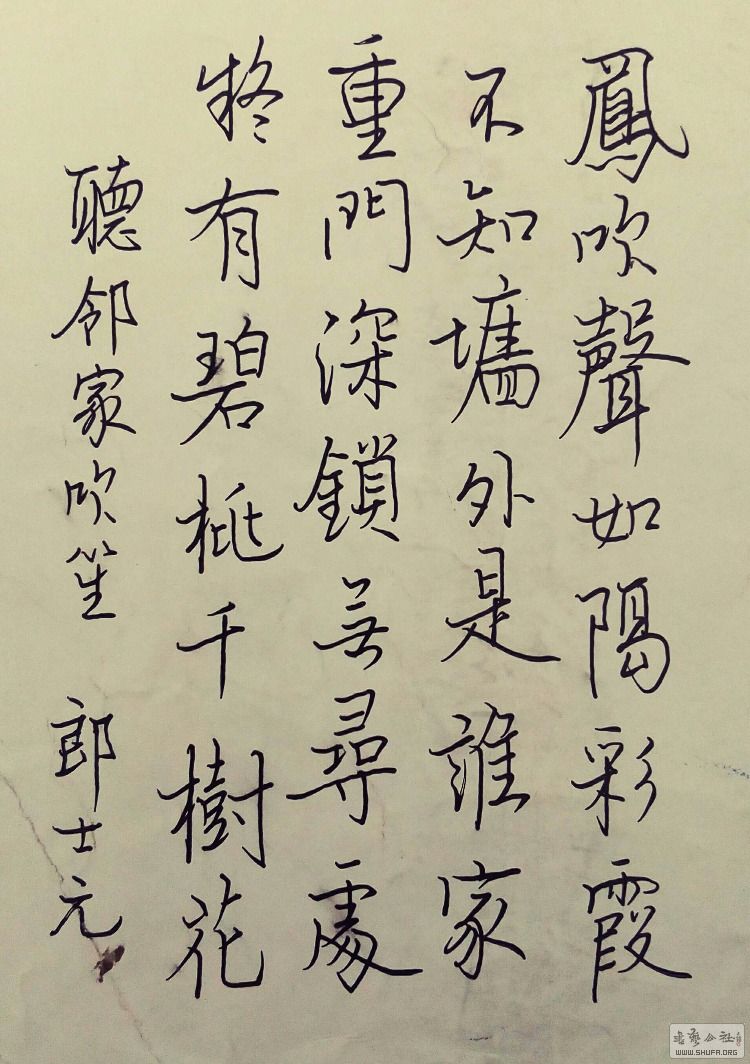 鳳吹聲如隔彩霞
不知墻外是誰家
重門深鎖無尋處
疑有碧桃千樹花
聽邻家吹笙 郎士元
書藝公社
WWW.SHUFA.ORG